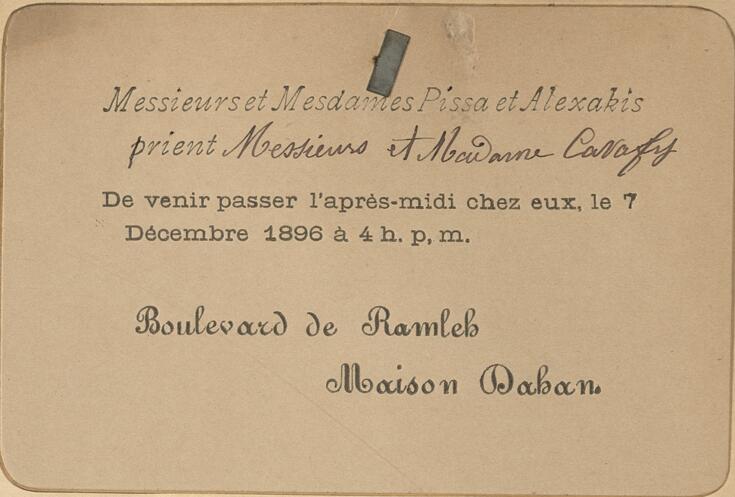 Messieurs et Mesdames Pissa et Alexakis
prient Messieurs et Madame Cavafy
De venir passer l'après-midi chez eux, le 7
Décembre 1896 à 4 h. p, m.
Boulevard de Ramleh
Maison Dahan.